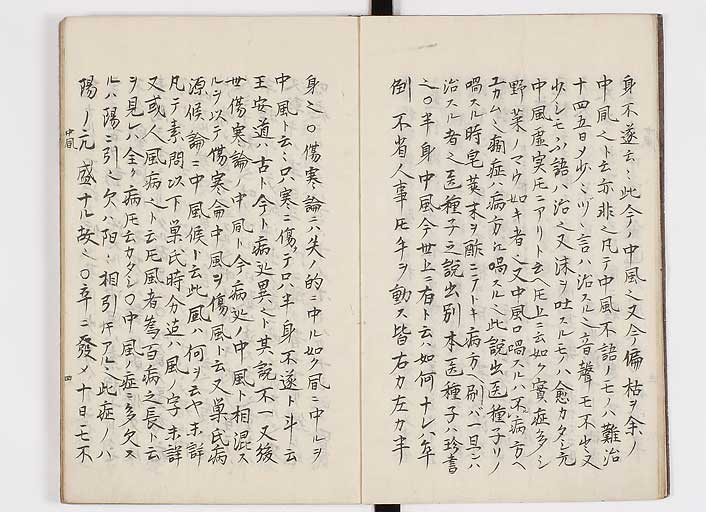 身不遂ト云ヿ此今ノ中風也又今偏枯ヲ余ノ
中風也ト云亦非也凡テ中風不語ノモノハ難治
十四五日ヲ少シヅヽ言ハ治スル也音聲モ不出又
少シモ不語ハ治也又沫ヲ吐スルモノハ愈カタシ元
中風虚実ニアリト云ヘ上ニ云如ク實症多シ
野菜ノマウ如キ者也又中風口喎スルハ不病方ヘ
ユカム也痼症ハ病方ニ喎スル也此説出医種子リノ
喎スル時皂莢末ヲ酢ニテトキ病方ヘ刷バ一旦ハ
治スル者也医種子之説出別本医種子ハ珍書
也〇半身中風今世上ニ有ト云ハ如何ナレハ卒
倒不省人事手ヲ動ス皆右カ左カ半
身也〇傷寒論ニハ失的ニ中ル如ク風ニ中ルヲ
中風ト云也只寒ニ傷テ只半身不遂ト斗云
王安道ハ古ト今ト病処異也ト其説不一又後
世傷寒論ノ中風ト今病処ノ中風ト相混ス
ルヲ以テ傷寒侖中風ヲ傷風ト云又巣氏病
源候論ニ中風候ト云此風ハ何ヲ云ヤ未詳
凡テ素問以下巣氏時分迠ハ風ノ字未詳
又或人風病也ト云風者為百病之長ト云
ヲ見レハ全ク病云カタシ〇中風ノ症ニ多欠ス
ルハ陽ニ引也欠ハ陽ト相引テアル也此症ノハ
陽ノ元盛ナル故也〇卒ニ發ノ十日モ不
中風
四